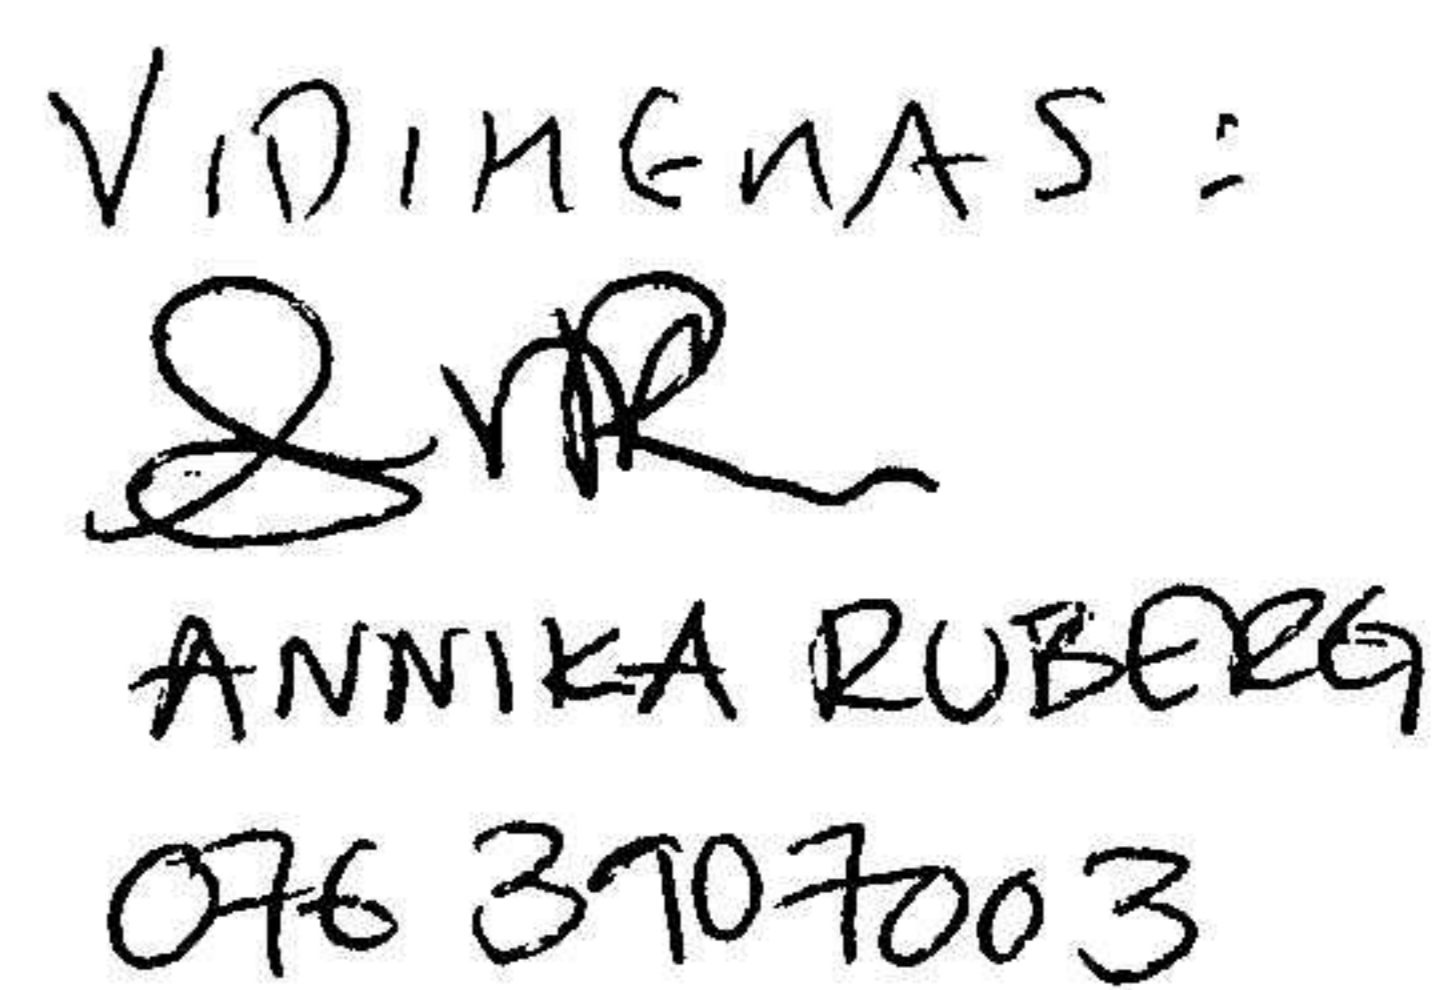 VIDIMERAS:
ANNIKA RUBERG
076 3907003